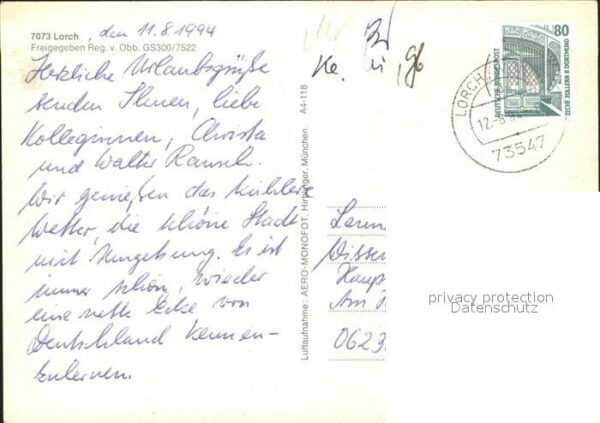 7073 Lorch, den 11.8.1994
Freigegeben Reg. v. Obb. GS300/7522
Herzliche Urlaubsgrüße
senden Ihnen, liebe
Kolleginnen, Christa
und Walter Rausch.
Wir genießen das kühlere
Wetter, die schöne Stadt
mit Umgebung. Es ist
immer schön, wieder
eine nette Ecke von
Deutschland kennen-
zulernen.
Luftaufnahme: AERO-MONOFOT, Hirtinger, München A4-118
80
DEUTSCHE BUNDESPOST
ZECHE ZOLLERN II DORTMUND
LORCH
12.-8.9
73547
Haup
Am
0623
privacy protection
Datenschutz